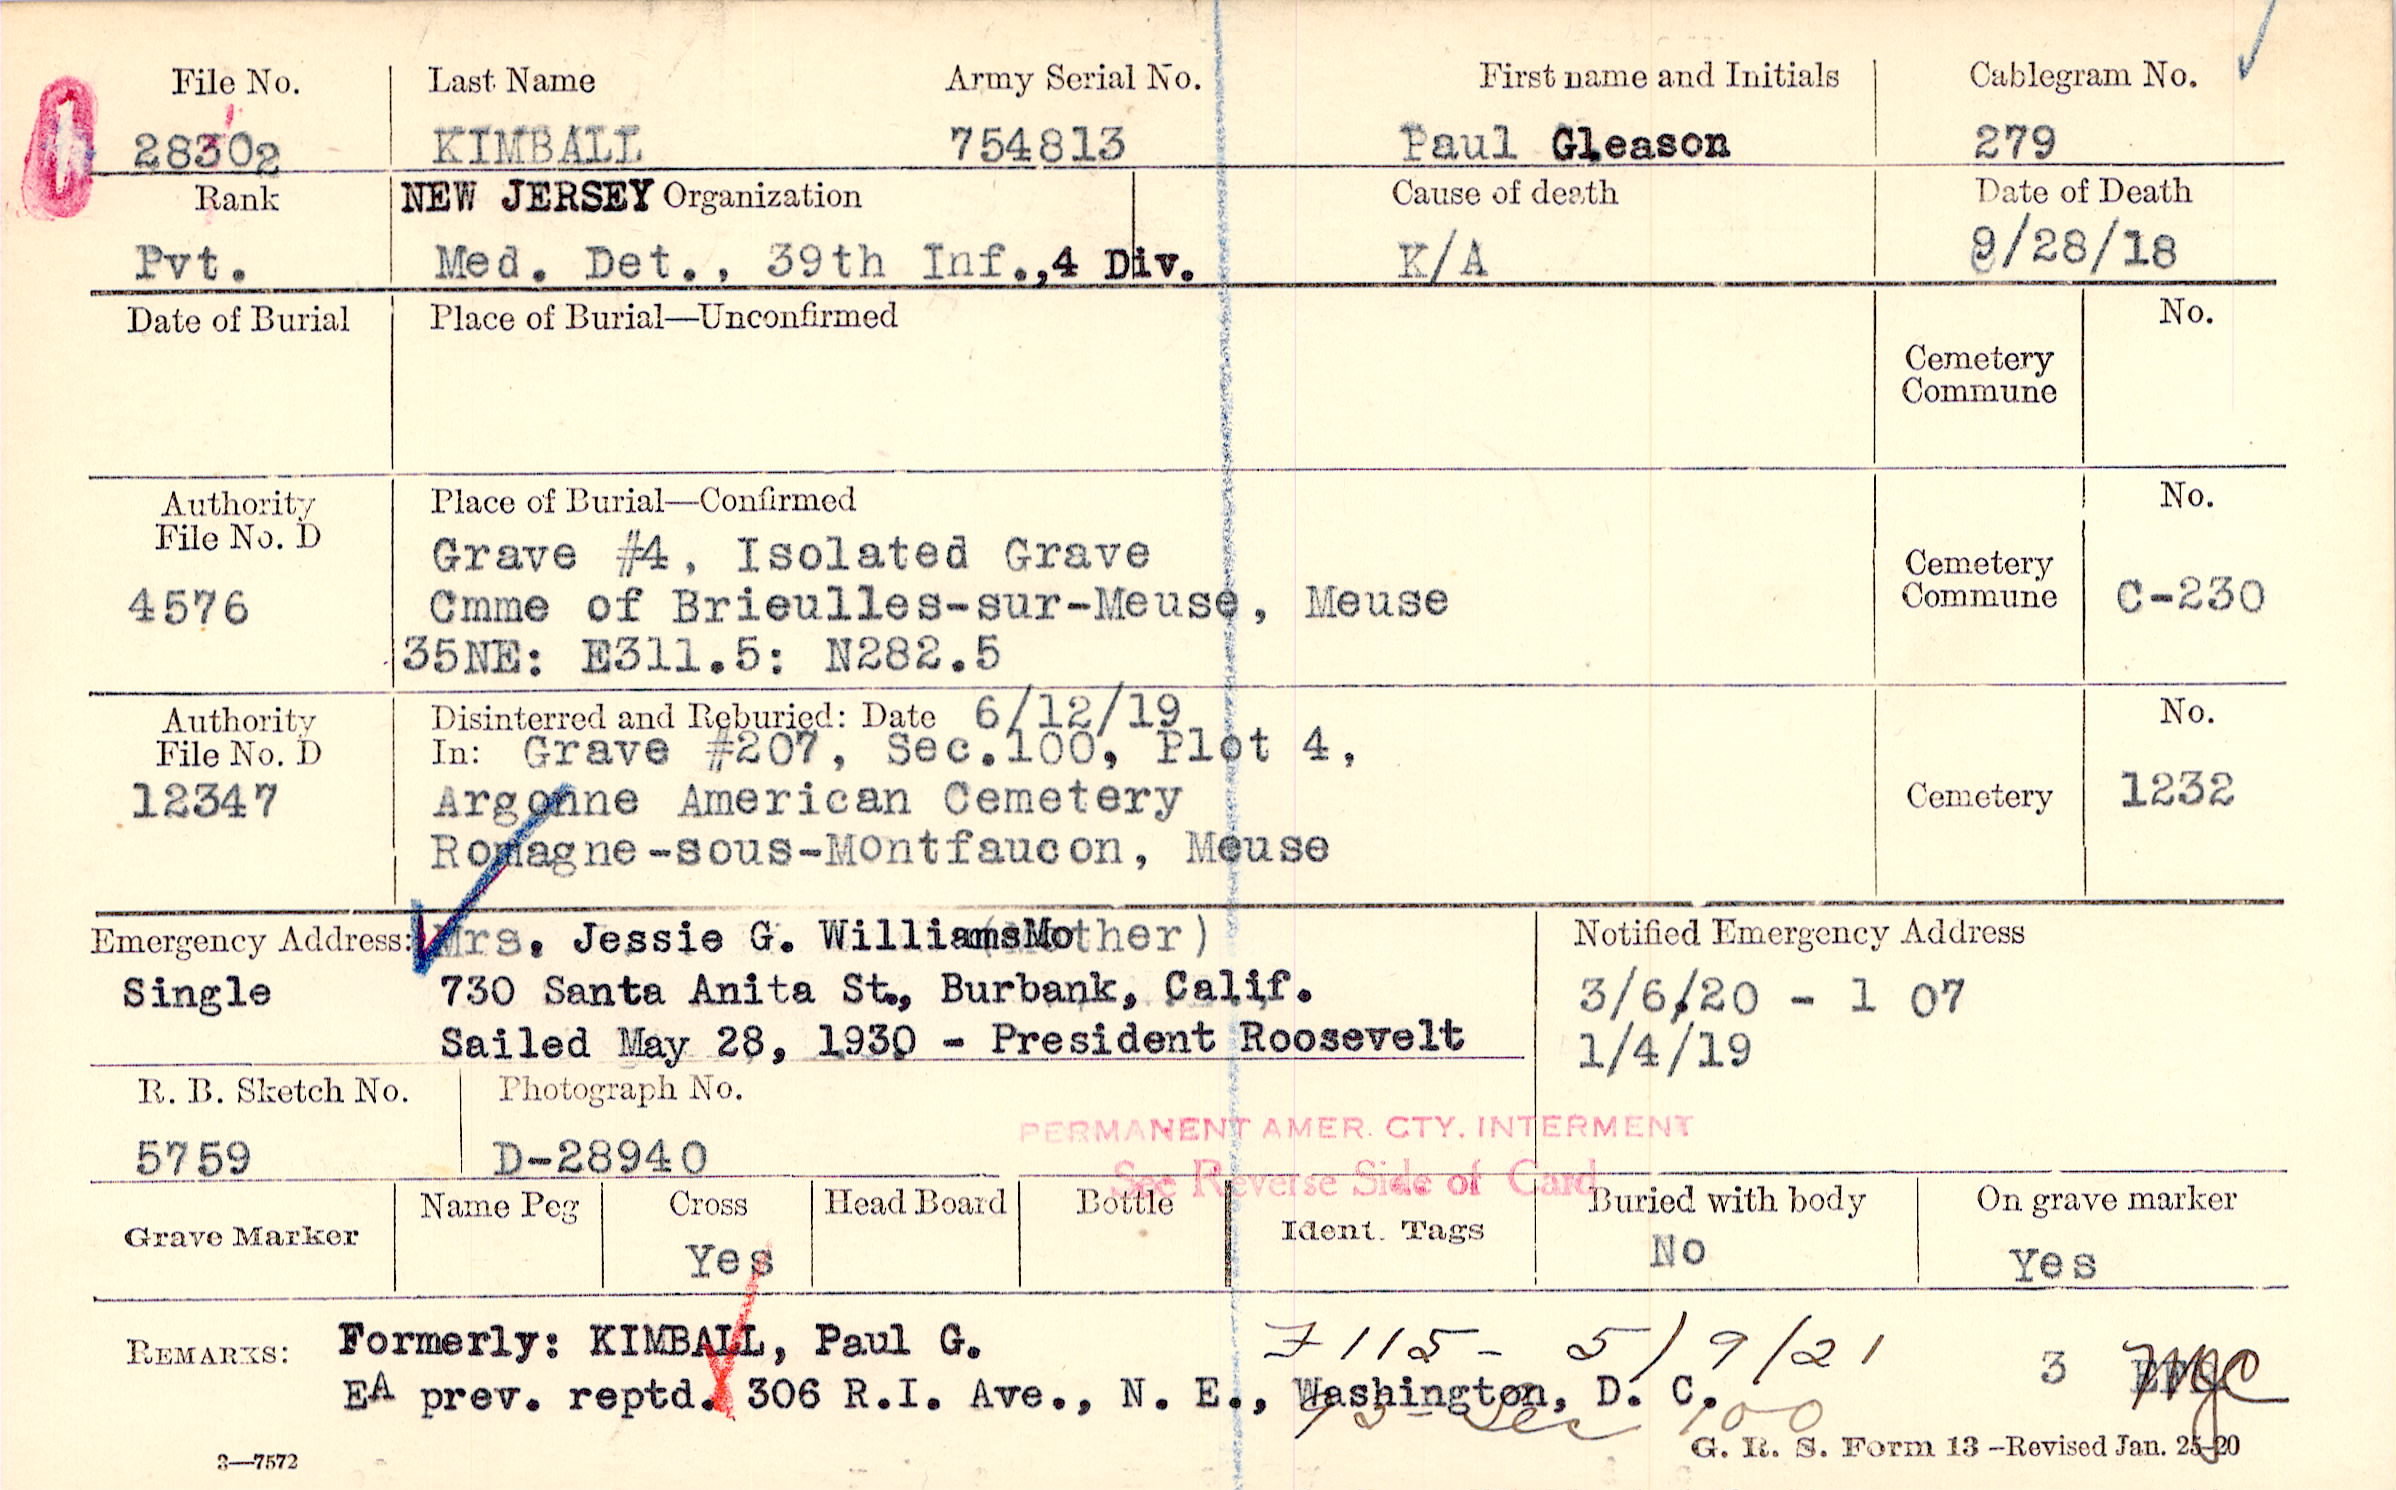 File No. Last Name Army Serial No. First name and Initials Cablegram No.
28302 KIMBALL 754813 Paul Gleason 279
Rank NEW JERSEY Organization Cause of death Date of Death
Pvt. Med. Det., 39th Inf.,4 Div. K/A 9/28/18
Date of Burial Place of Burial—Unconfirmed No.
Cemetery
Commune
Authority Place of Burial—Confirmed No.
File No. D
Grave #4, Isolated Grave
Cemetery
4576 Cmme of Brieulles-sur-Meuse, Meuse Commune C-230
35NE: E311.5: N282.5
Authority Disinterred and Reburied: Date 6/12/19 No.
File No. D In: Grave #207, Sec.100, Plot 4,
12347 Argonne American Cemetery Cemetery 1232
Romagne-sous-Montfaucon, Meuse
Emergency Address: Mrs. Jessie G. Williams Mother) Notified Emergency Address
Single 730 Santa Anita St., Burbank, Calif. 3/6/20 - 1 07
Sailed May 28, 1930 - President Roosevelt 1/4/19
R. B. Sketch No. Photograph No.
PERMANENT AMER. CTY. INTERMENT
5759 D-28940
See Reverse Side of Card
Grave Marker Name Peg Cross Head Board Bottle Ident. Tags Buried with body On grave marker
Yes No Yes
REMARKS: Formerly: KIMBALL, Paul G. 7115- 5/9/21 3
EA prev. reptd. 306 R.I. Ave., N. E., Washington, D. C.
Sec 100
3—7572 G. R. S. Form 13 -Revised Jan. 25-20